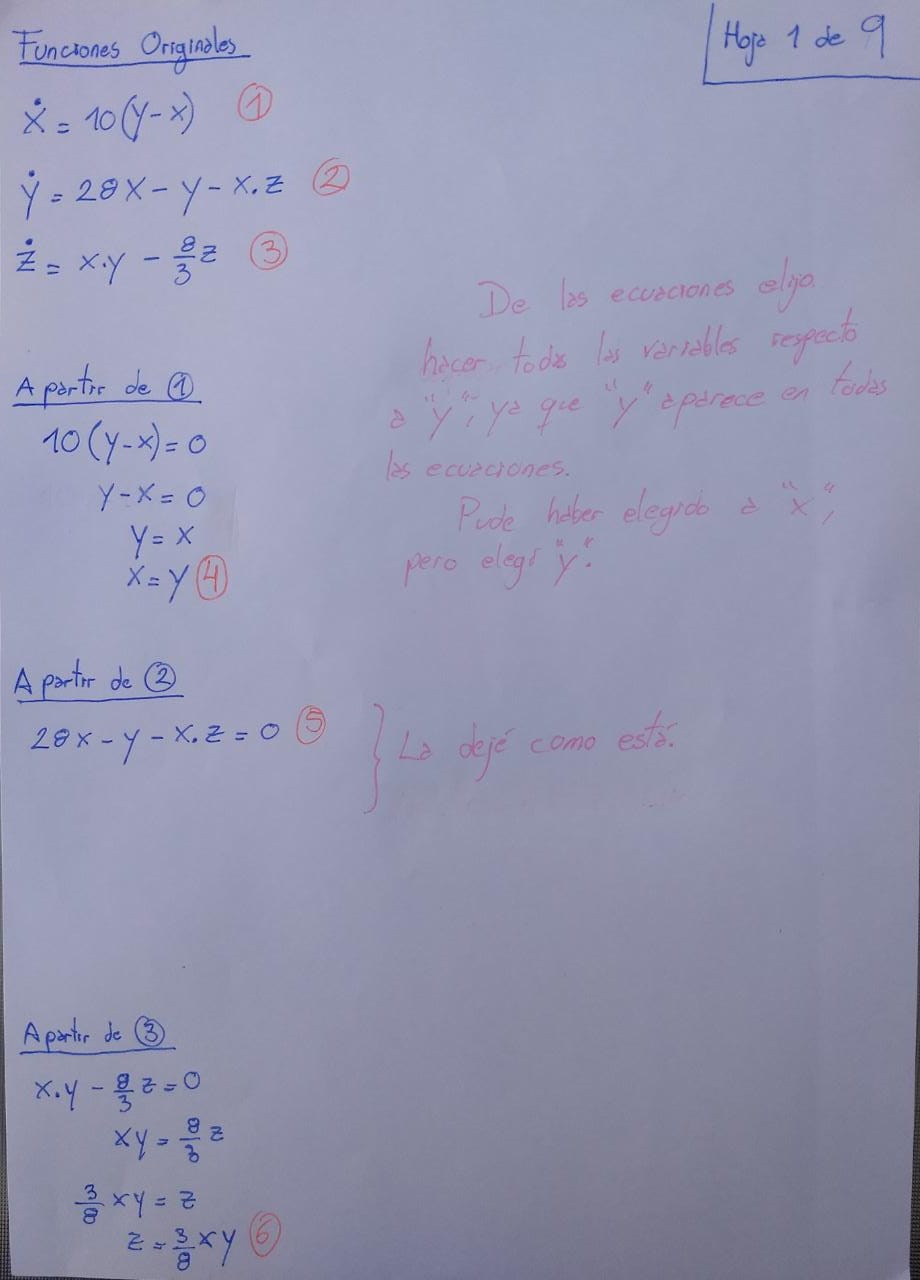 Funciones Originales
Hoja 1 de 9
ẋ = 10(y-x) ①
ẏ = 28x - y - x.z ②
ż = x.y - 8/3 z ③
De las ecuaciones elijo
hacer todas las variables respecto
a "y", ya que "y" aparece en todas
las ecuaciones.
Pude haber elegido a "x",
pero elegí "y".
A partir de ①
10(y-x)=0
y-x=0
y=x
x=y ④
A partir de ②
28x-y-x.z=0 ⑤
} La dejé como está.
A partir de ③
x.y - 8/3 z = 0
xy = 8/3 z
3/8 xy = z
z = 3/8 xy ⑥